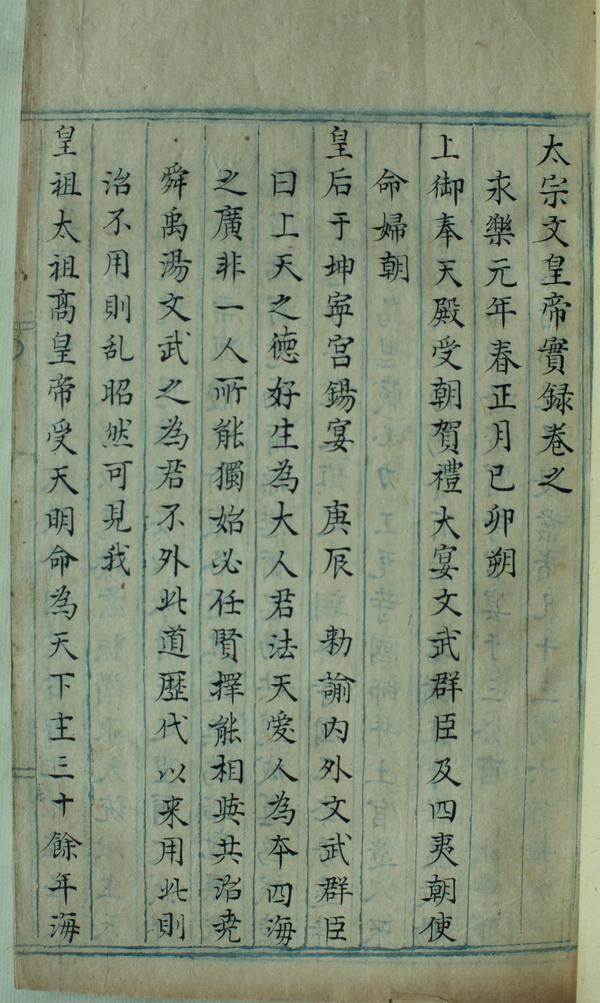 太宗文皇帝實録卷之
永樂元年春正月己卯朔
上御奉天殿受朝賀禮大宴文武群臣及四夷朝使
命婦朝
皇后于坤寧宫錫宴　庚辰　勑諭内外文武群臣
曰上天之德好生為大人君法天愛人為本四海
之廣非一人所能獨治必任賢擇能相與共治堯
舜禹湯文武之為君不外此道歷代以来用此則
治不用則乱昭然可見我
皇祖太祖高皇帝受天明命為天下主三十餘年海